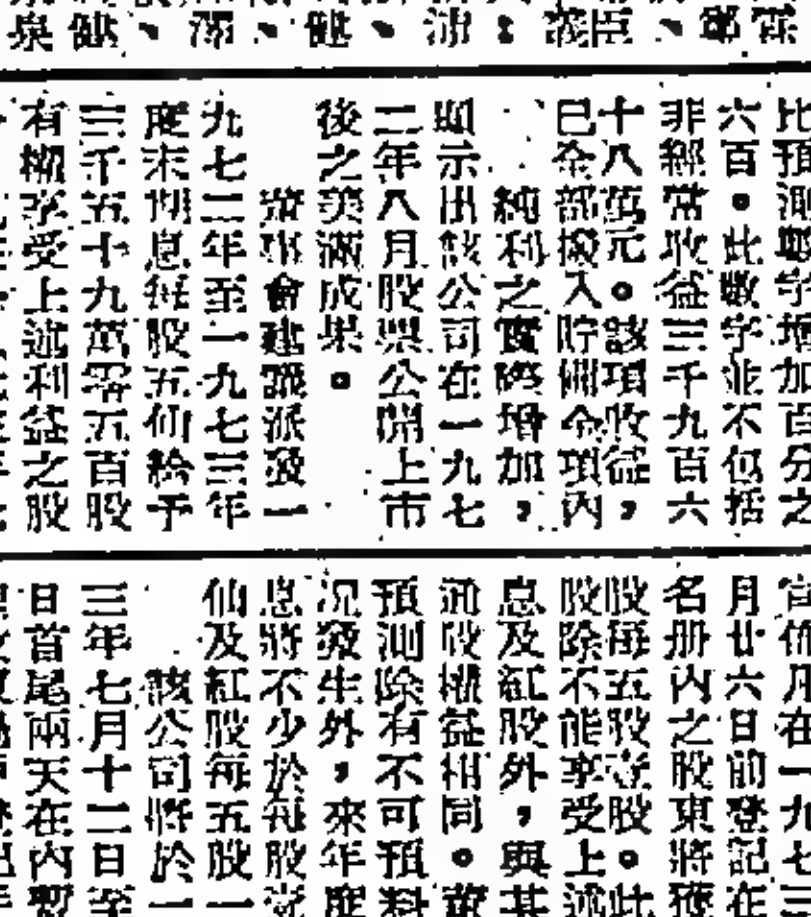 霖
鄭
、
臣
義
：
沛
、
健
、
澤
、
健
泉
比預測數字增加百分之
六百。此數字並不包括
非經常收益三千九百六
十八萬元。該項收益，
已全部撥入貯備金項內
純利之實際增加，
顯示出該公司在一九七
二年八月股票公開上市
後之美滿成果。
董事會建議派發一
九七二年至一九七三年
度末期息每股五仙給予
三千五十九萬零五百股
有權享受上述利益之股
月廿六日前登記在
名册內之股東將獲
股每五股壹股。此
股除不能享受上述
息及紅股外，與其
通股權益相同。董
預測除有不可預料
况發生外，來年度
息將不少於每股壹
仙及紅股每五股一
該公司將於一
三年七月十二日至
日首尾兩天在內暫